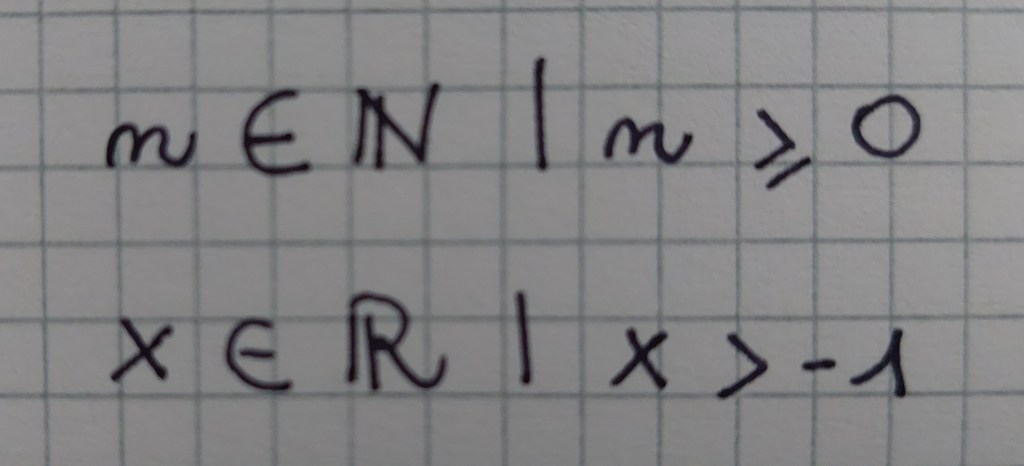 n ∈ ℕ | n ⩾ 0
x ∈ ℝ | x > -1